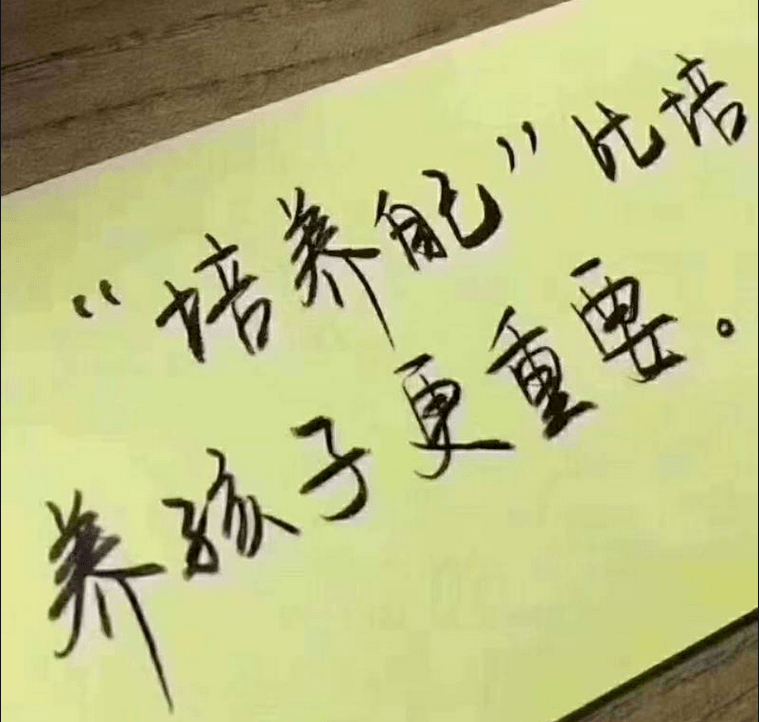 “培养自己”比培
养孩子更重要。